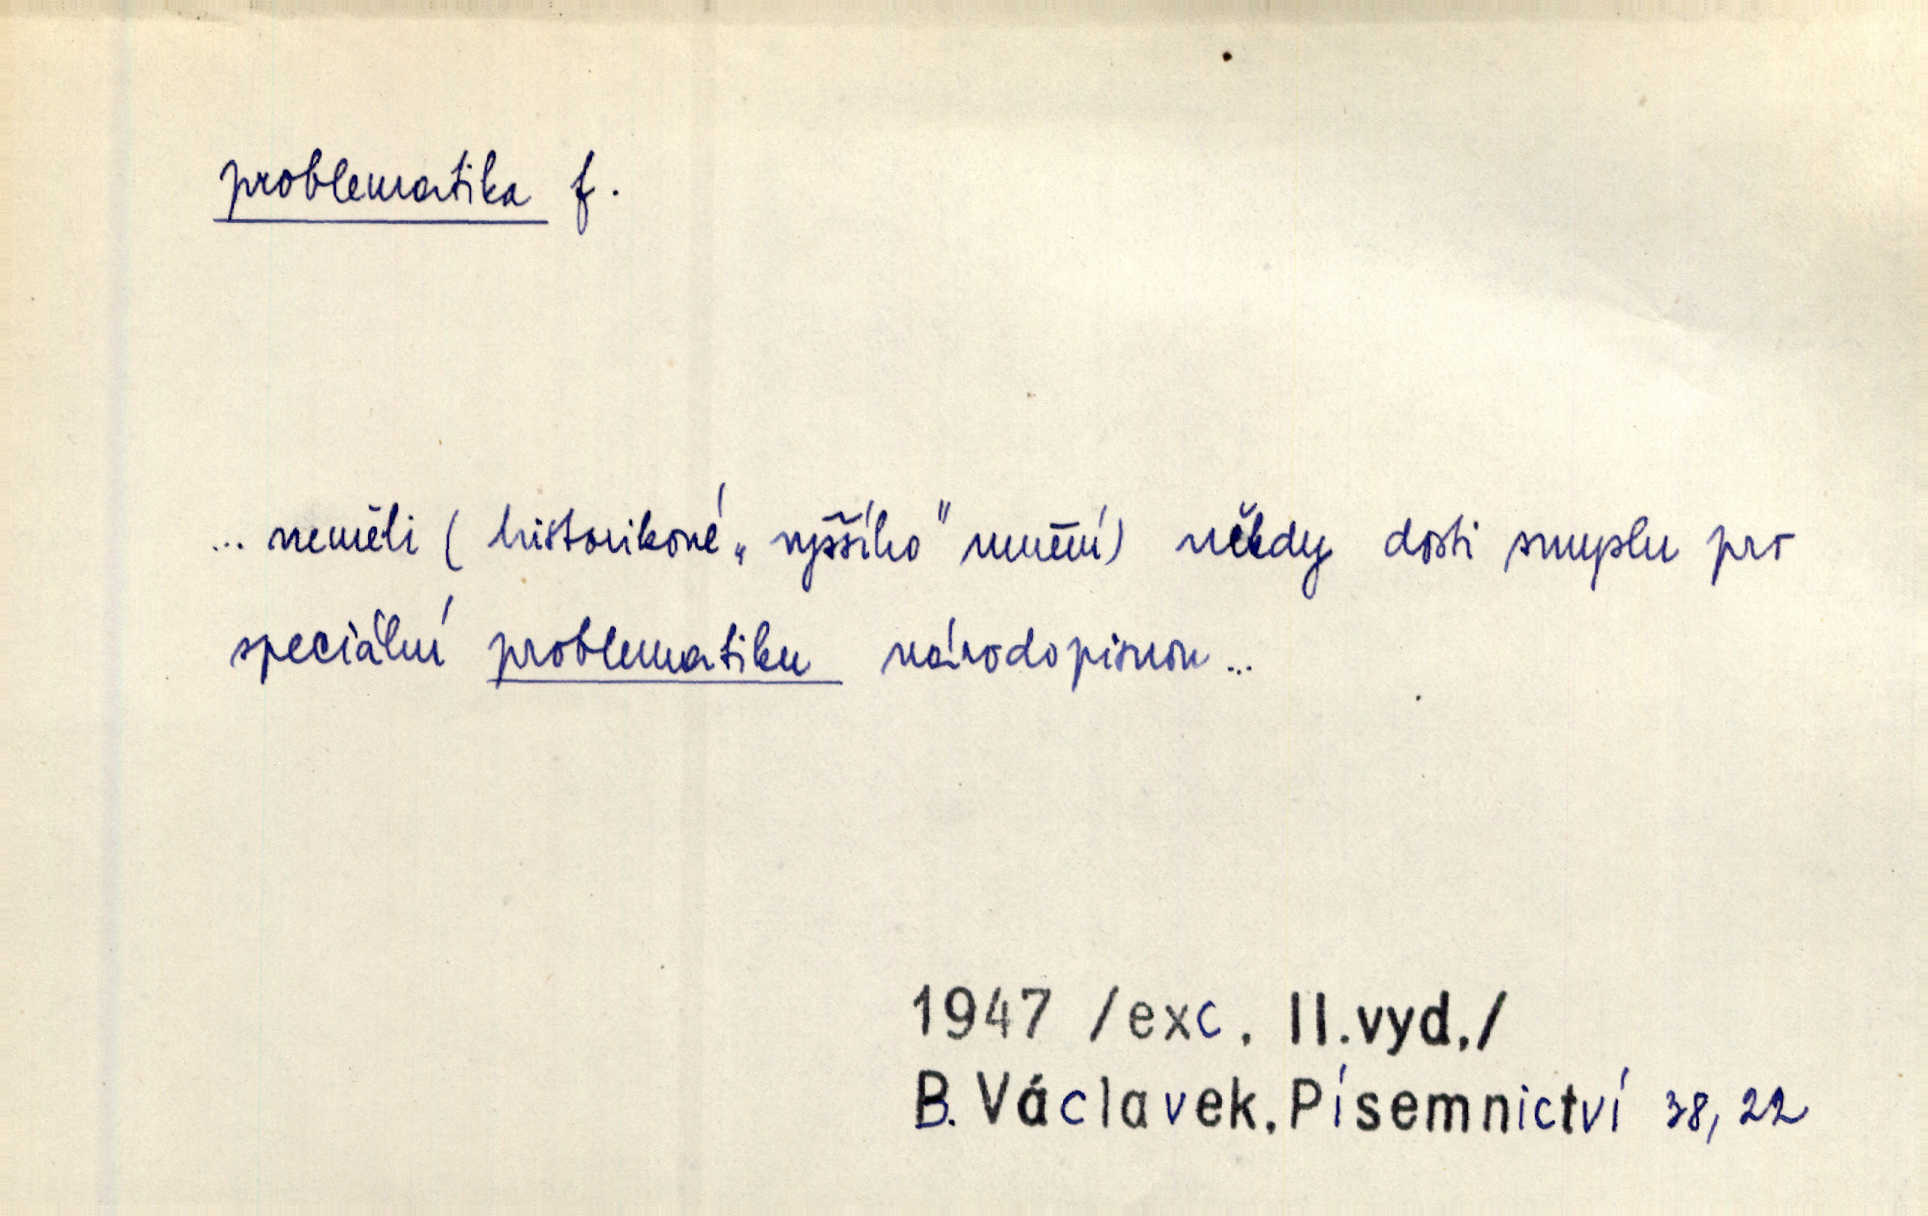 problematika f.
... neměli (historikové „vyššího" umění) někdy dosti smyslu pro
speciální problematiku národopisnou...
1947 /exc. II.vyd./
B. Václavek, Písemnictví 38, 22